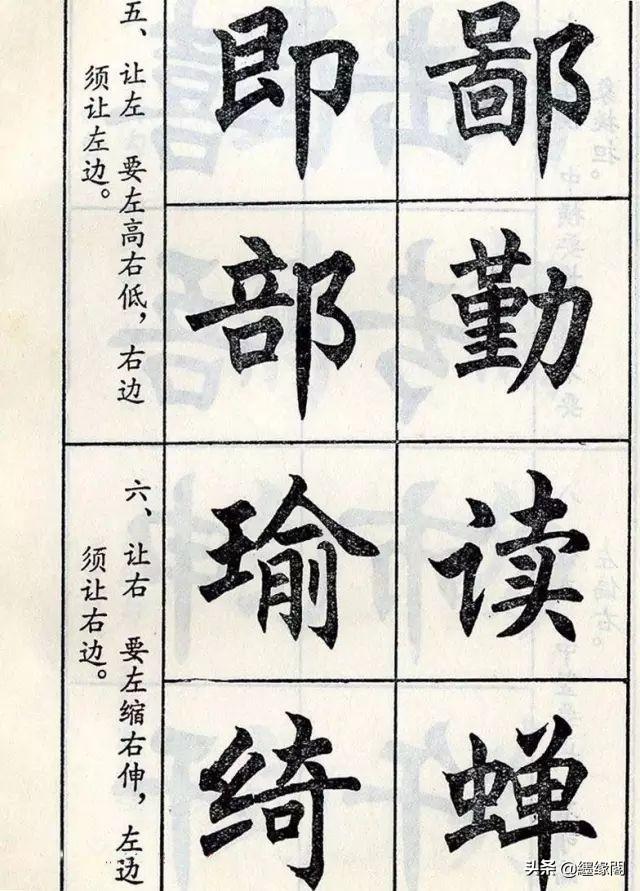 五、让左 要左高右低，右边
须让左边。
鄙
即
勤
部
六、让右 要左缩右伸，左边
须让右边。
读
瑜
蝉
绮
头条 @纒缘閣